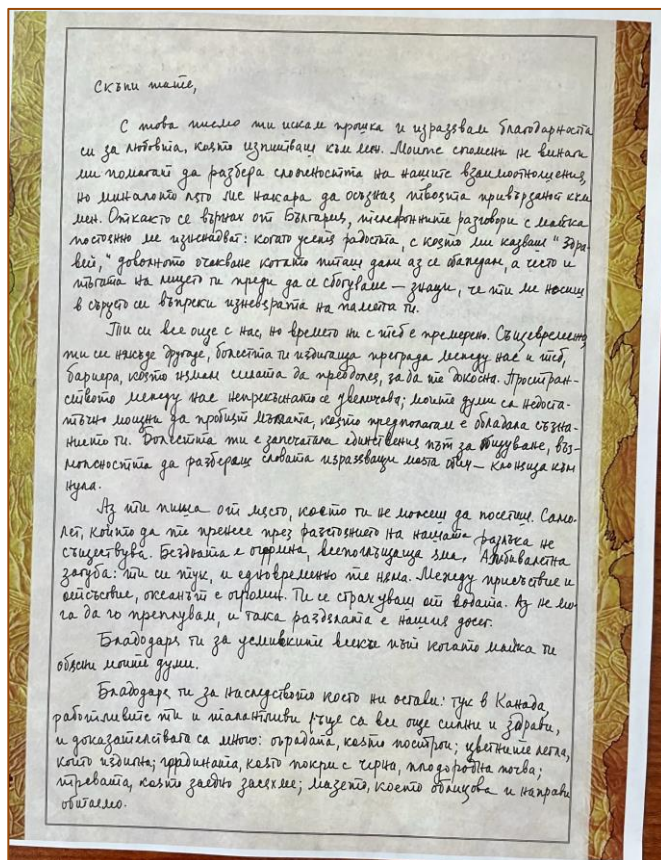 Скъпи тате,
С това писмо ти искам прошка и изразявам благодарността
си за любовта, която изпитваш към мен. Моите спомени не винаги
ми помагат да разбера сложността на нашите взаимоотношения,
но миналото лято ме накара да осъзная твоята привързаност към
мен. Откакто се върнах от България, телефонните разговори с майка
постоянно ме изненадват: когато усетя радостта, с която ми казваш "Здра-
вей," доволното очакване когато питаш дали аз се обаждам, а често и
тъгата на лицето ти преди да се сбогуваме — знаци, че ти ме носиш
в сърцето си въпреки изневярата на паметта ти.
Ти си все още с нас, но времето ни с теб е премерено. Същевременно,
ти си някъде другаде, болестта ти издигаща преграда между нас и теб,
бариера, която нямам силата да преодолея, за да те докосна. Простран-
ството между нас непрекъснато се увеличава; моите думи са недоста-
тъчно мощни да пробият мъглата, която предполагам е обладала съзна-
нието ти. Болестта ти е запечатала единствения път за общуване, въз-
можността да разбереш словата изразяващи моята обич — клоняща към
нула.
Аз ти пиша от място, което ти не можеш да посетиш. Само-
лет, който да те пренесе през разстоянието на нашата разлъка не
съществува. Бездната е огромна, всепоглъщаща зима. Амбивалентна
загуба: ти си тук, и едновременно те няма. Между присъствие и
отсъствие, океанът е огромен. Ти се страхуваш от водата. Аз не мо-
га да го преплувам, и така раздялата е нашия досег.
Благодаря ти за усмивките всеки път когато майка ти
обясни моите думи.
Благодаря ти за наследството което ни остави: тук в Канада,
работливите ти и талантливи ръце са все още силни и здрави,
и доказателствата са много: оградата, която построи; цветните легла,
които издигна; градината, която покри с черна, плодородна почва;
тревата, която заедно засяхме; мазето, което облицова и направи
обитаемо.